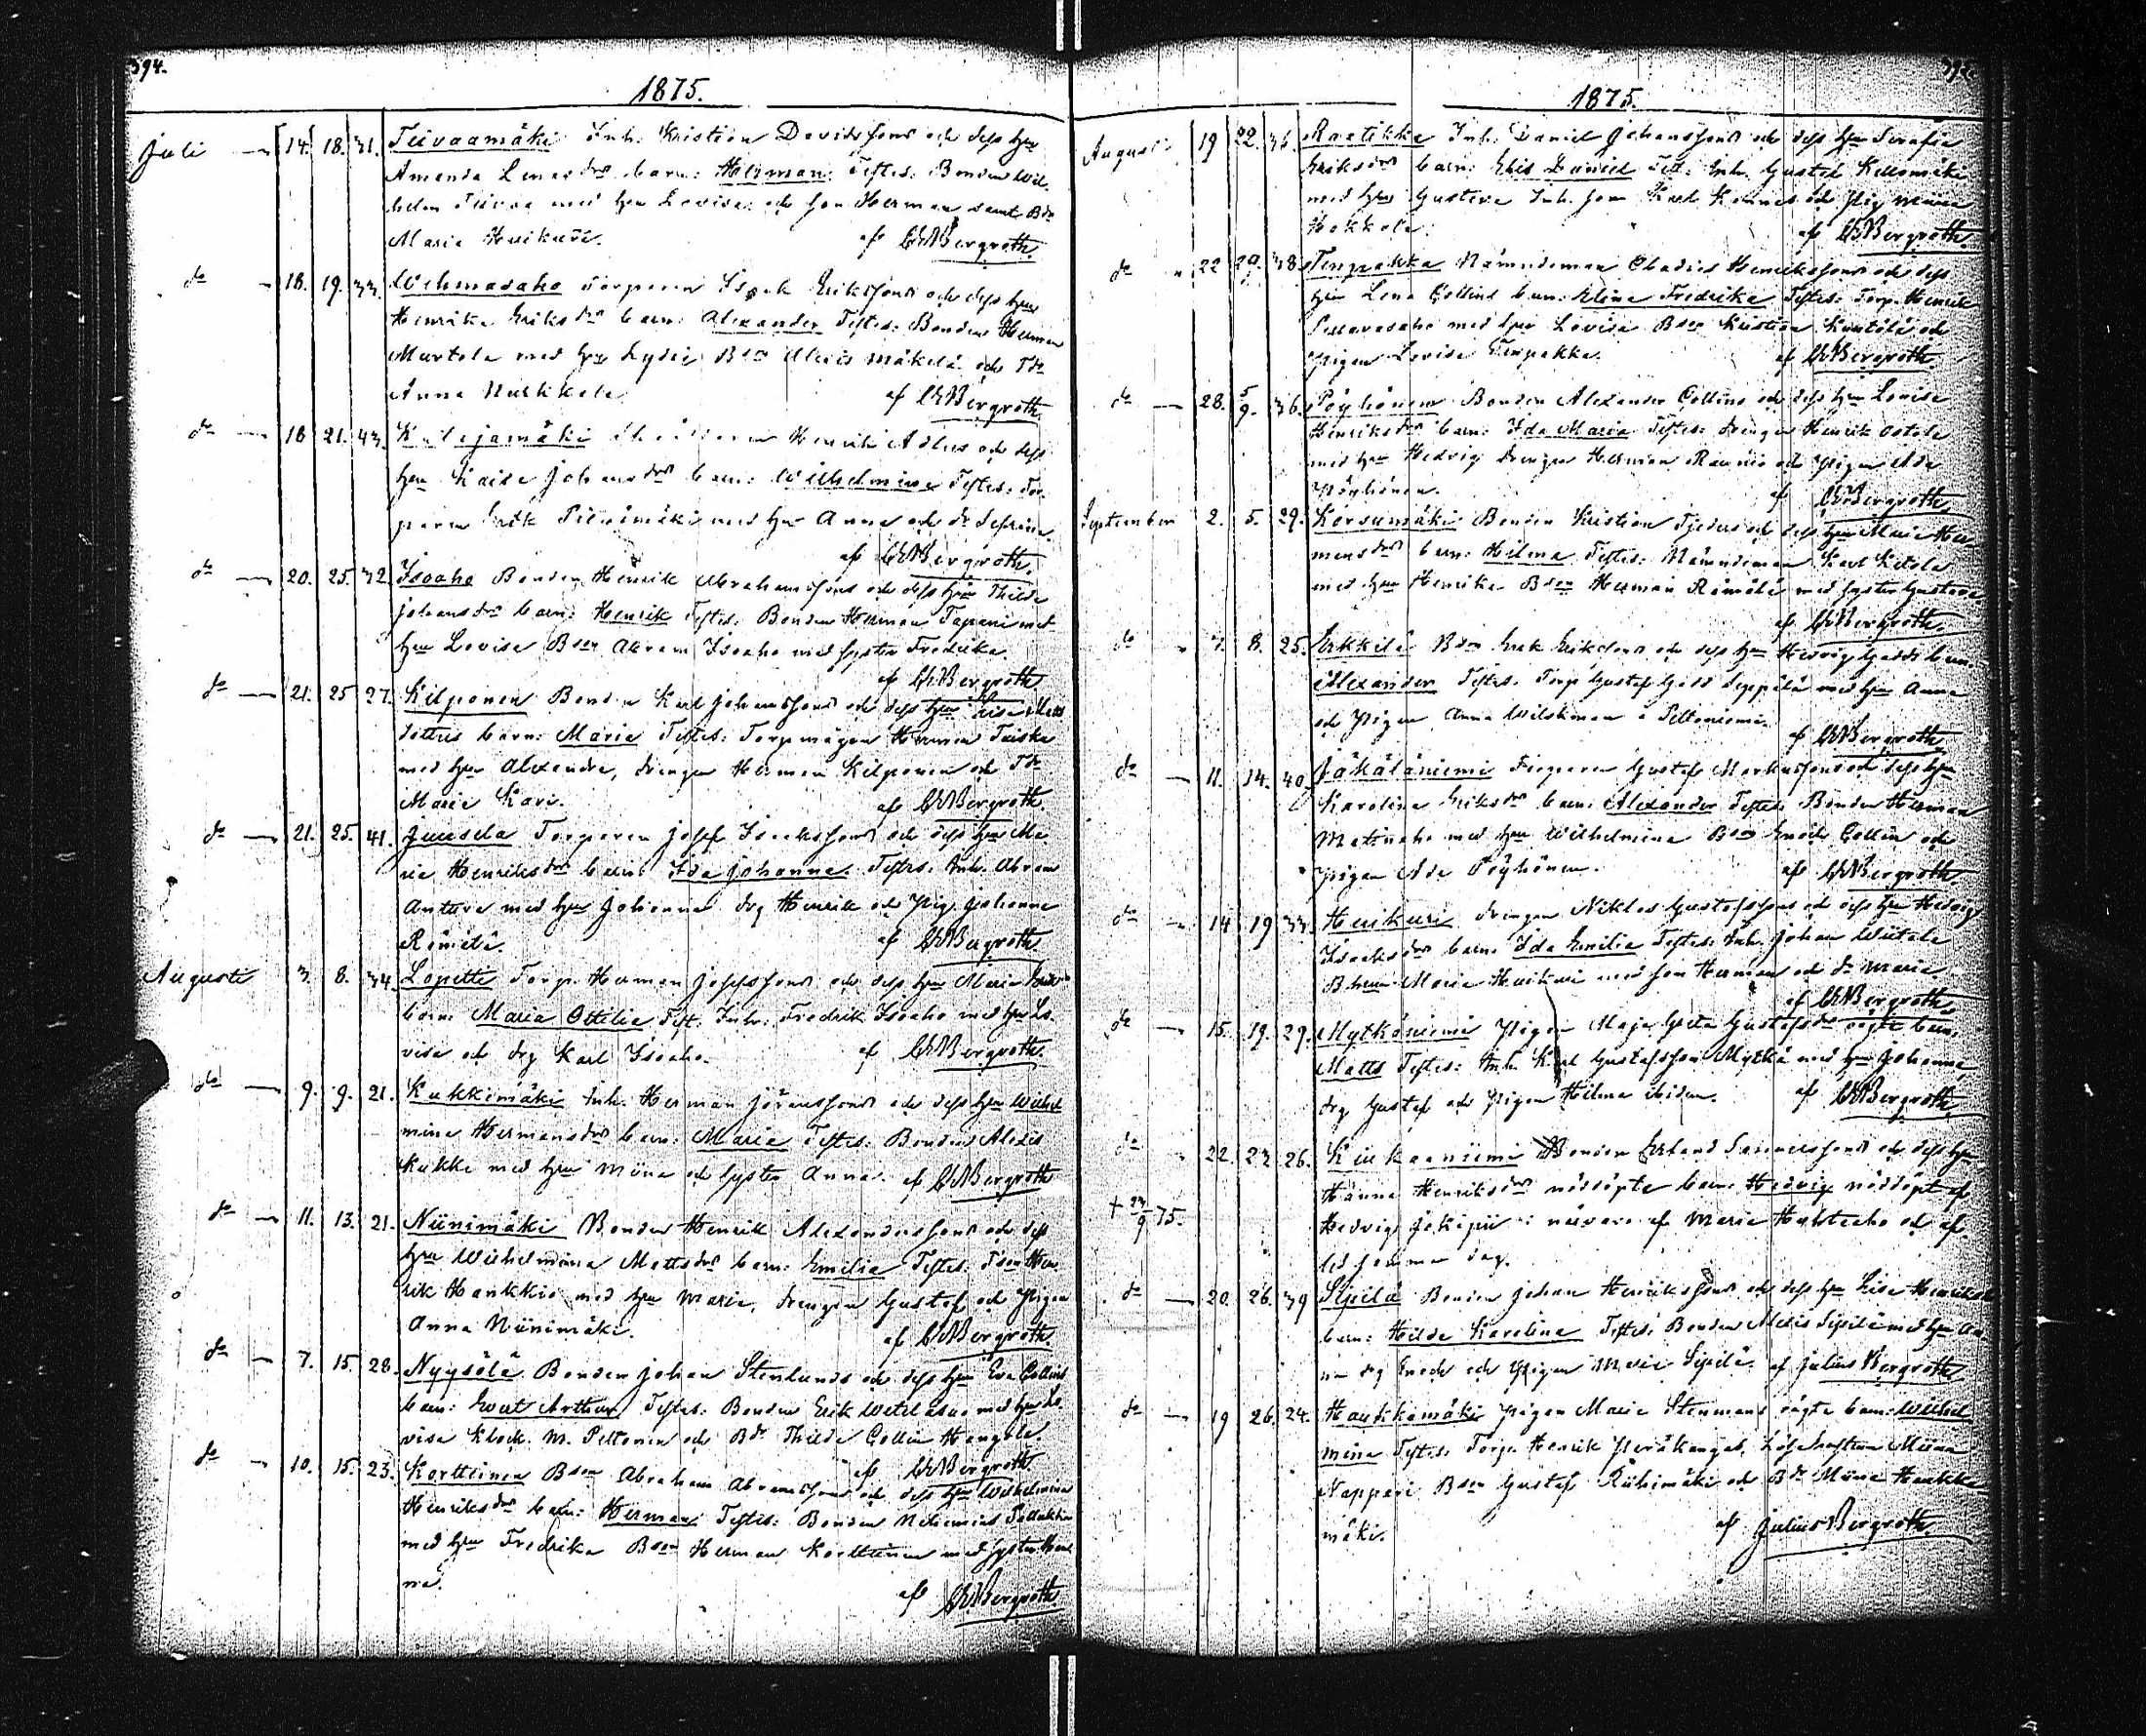 394.
1875.
Juli 14. 18. 31. Tiivaamäki Inh. Kristian Davidssons och dess hu
Amanda Lenasdrs barn: Herman. Testes: Bonden Wil-
helm Tiivaa med hu Lovisa och son Herman samt Bdr
Maria Huikuri. af Bergroth.
do 18. 19. 33. Torparen Isaak Erikssons och dess hu
Henrika Eriksdrs barn: Alexander Testes: Bonden Herman
Martola med hu Lydia Bson Alexis Mäkelä och Tdr
Anna af Bergroth
do 18 21. 43. Henrik Adlers och dess
hu Kaisa Johansdrs barn: Wilhelmina Testes: Tor-
paren Erik med hu Anna och dr Serafina.
af Bergroth.
do 20. 25. 32. Isoaho Bonden Henrik Abrahamssons och dess hu Thilda
Johansdrs barn: Henrik Testes: Bonden Herman Tapani med
hu Lovisa Bson Abram Isoaho med syster Fredrika.
af Bergroth
do 21. 25 27. Kilponen Bonden Karl Johanssons och dess hu Lisa Matts
dotters barn: Maria Testes: Torpmågen Herman
med hu Alexandra, drengen Herman Kilponen och Tdr
Maria Kari. af Bergroth
do 21. 25. 41. Juusela Torparen Josef Isaakssons och dess hu Ma-
ria Henriksdrs barn: Ida Johanna. Testes: Inh. Abram
Anttura med hu Johanna drg Henrik och Pig. Johanna
Rämälä. af Bergroth
Augusti 3. 8. 34. Lopette Torp. Herman Josefssons och dess hu Maria
barn: Maria Ottilia Test. Inh. Fredrik Isoaho med hu Lo-
visa och drg Karl Isoaho. af Bergroth.
do 9. 9. 21. Kukkimäki Inh. Herman Göranssons och dess hu Wilhel
mina Hermansdrs barn: Maria Testes: Bonden Alexis
Kukko med hu Miina och syster Anna. af Bergroth
do 11. 13. 21. Niinimäki Bonden Henrik Alexanderssons och dess
hu Wilhelmina Mattsdrs barn: Emilia Testes: Bson Hen-
rik Haukkio med hu Maria, drengen Gustaf och Pigan
Anna Niinimäki. af Bergroth.
do 7. 15. 28. Nyysölä Bonden Johan Stenlunds och dess hu Eva Collins
barn: Evert Arthur Testes: Bonden Erik med hu Lo-
visa Klock. M. Peltonen och Bdr Thilda Collin
af Bergroth
do 10. 15. 23. Korttinen Bson Abraham Abramssons och dess hu Wilhelmina
Henriksdrs barn: Herman Testes: Bonden Nehemias
med hu Fredrika Bson Herman Korttinen med syster Wend
na. af Bergroth.
1875.
Augusti 19 22. 36. Raatikka Inh. Daniel Johanssons och dess hu Serafia
Eriksdrs barn: Elis Daniel Test: Inh. Gustaf Kellomäki
med hu Gustava Inh. son Karl och Pig Miina
Hokkola. af Bergroth.
do 22 29. 38. Tenpakka Nämndeman Obadias Henrikssons och dess
hu Lena Collins barn: Elina Fredrika Testes: Torp. Henrik
med hu Lovisa Bson Kristian och
Pigan Lovisa Tenpakka. af Bergroth.
do 28. 5/9. 36. Pöyhönen Bonden Alexander Collins och dess hu Lovisa
Henriksdrs barn: Ida Maria Testes: drengen Henrik Ostola
med hu Hedvig drengen Herman Raunio och Pigan Ada
Pöyhönen. af Bergroth
September 2. 5. 29. Korsumäki Bonden Kristian och dess hu Maria Her-
mansdrs barn: Hilma Testes: Nämndeman Karl Ketola
med hu Henrika Bson Herman Rämälä med syster Gustava
af Bergroth.
do 7. 8. 25. Erkkilä Bson Erik Erikssons och dess hu Hedvig Gädds barn:
Alexander Testes. Torp Gustaf Gädd Seppälä med hu Anna
och Pigan Anna Wilskman i Peltoniemi.
af Bergroth
do 11. 14. 40. Jäkäläniemi Torparen Gustaf Markussons och dess hu
Karolina Eriksdrs barn: Alexander Testes: Bonden Herman
med hu Wilhelmina Bson Enoch Collin och
Pigan Ada Pöyhönen. af Bergroth
do 14 19 33. Huikuri drengen Niklas Gustafssons och dess hu Hedvig
Isaaksdrs barn: Ida Emilia Testes: Inh. Johan Wiitala
Maria Huikuri med son Herman och dr Maria
af Bergroth
do 15. 19. 29. Mytkäniemi Pigan Maja Greta Gustafsdrs oägta barn:
Matts Testes: Inh. Karl Gustafsson Mytkä med hu Johanna,
drg Gustaf och Pigan Hilma ibidem. af Bergroth
do 22. 23 26. Kiukaaniemi Bonden Erland Samuelssons och dess hu
Hanna Henriksdrs nöddöpta barn: Hedvig nöddöpt af
+ 23/9 75. Hedvig Jokipii i närvaro af Maria och af-
led samma dag.
do 20. 26. 39 Sipilä Bonden Johan Henrikssons och dess hu Lisa Henriksd
barn: Hilda Karolina Testes: Bonden Alexis Sipilä med hu An
na drg Enoch och Pigan Maria Sipilä. af Julius Bergroth
do 19 26. 24. Haukkamäki Pigan Maria Stenmans oägta barn: Wilhel
mina Testes: Torp. Henrik Peräkangas, Miina
Nappari Bson Gustaf Riihimäki och Bdr Miina Haukka
mäki. af Julius Bergroth.